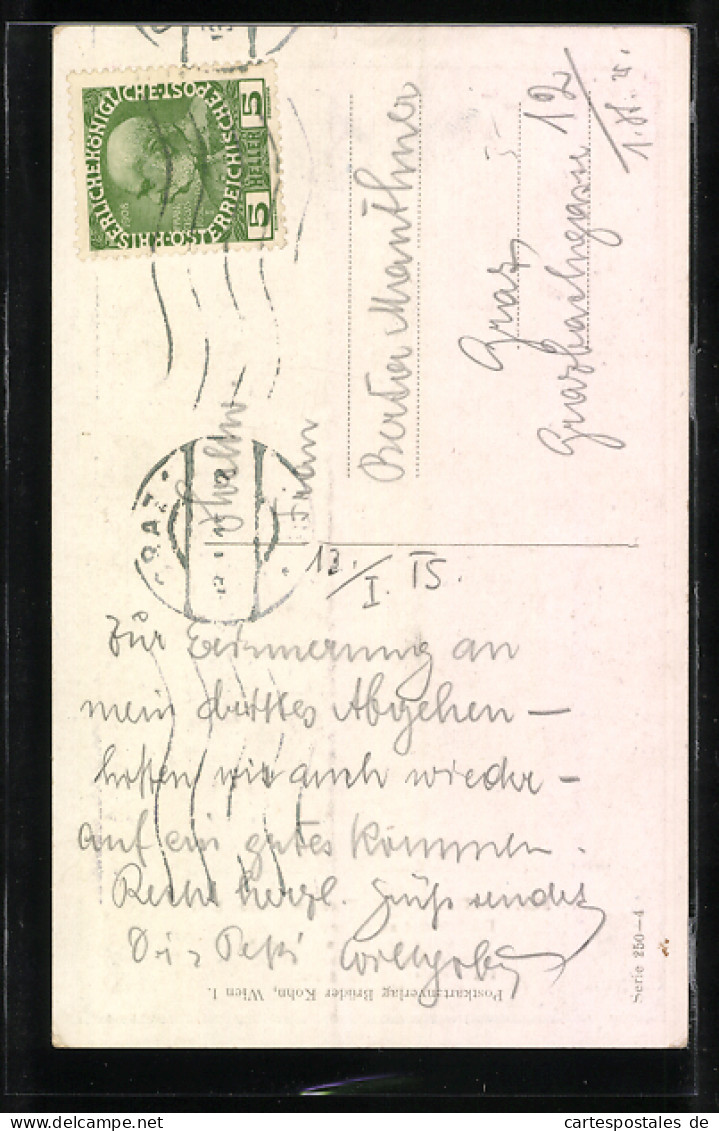 KAISERLICHE KÖNIGLICHE ÖSTERREICHISCHE POST
5 HELLER 5
1908
GRAZ
Wohlw.
Fräulein
Berta Mauthner
Graz
Grazbachgasse 12
1. St.
12./I. 15.
Zur Erinnerung an
mein drittes Abgehen –
hoffen wir auch wieder –
auf ein gutes Kommen.
Recht herzl. Grüße sendet
Pepi
Postkartenverlag Brüder Kohn, Wien I.
Serie 250—4
cartespostales de